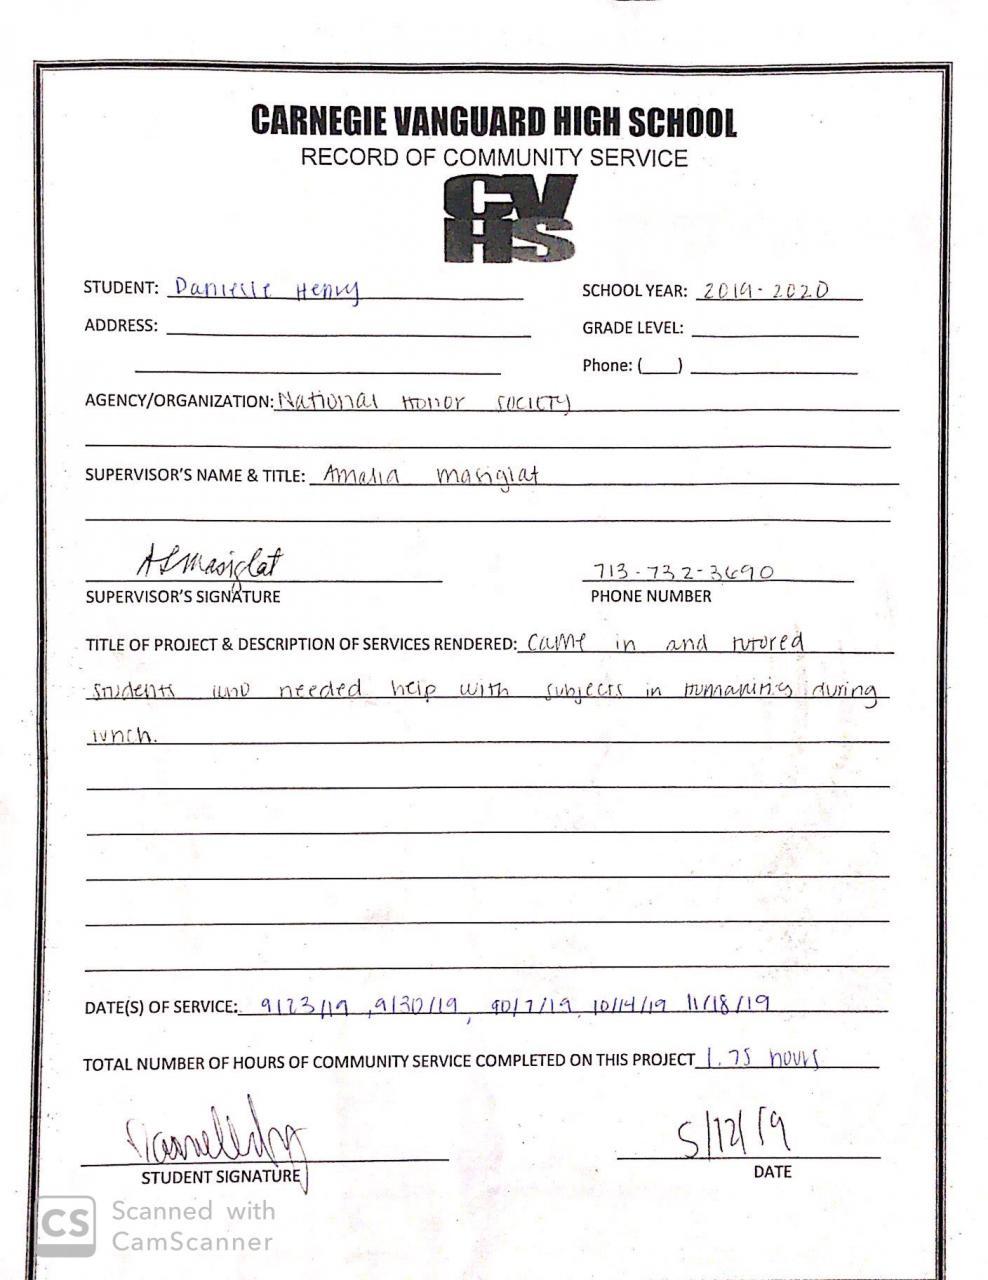 CARNEGIE VANGUARD HIGH SCHOOL
RECORD OF COMMUNITY SERVICE
CV
HS
STUDENT: Danielle Henry SCHOOL YEAR: 2019-2020
ADDRESS: GRADE LEVEL:
Phone: ( )
AGENCY/ORGANIZATION: National Honor Society
SUPERVISOR'S NAME & TITLE: Amalia Masiglat
ALMasiglat 713-732-3690
SUPERVISOR'S SIGNATURE PHONE NUMBER
TITLE OF PROJECT & DESCRIPTION OF SERVICES RENDERED: Came in and tutored
students who needed help with subjects in humanities during
lunch.
DATE(S) OF SERVICE: 9/23/19, 9/30/19, 10/7/19, 10/14/19 11/18/19
TOTAL NUMBER OF HOURS OF COMMUNITY SERVICE COMPLETED ON THIS PROJECT 1.75 hours
5/12/19
STUDENT SIGNATURE DATE
CS Scanned with
CamScanner